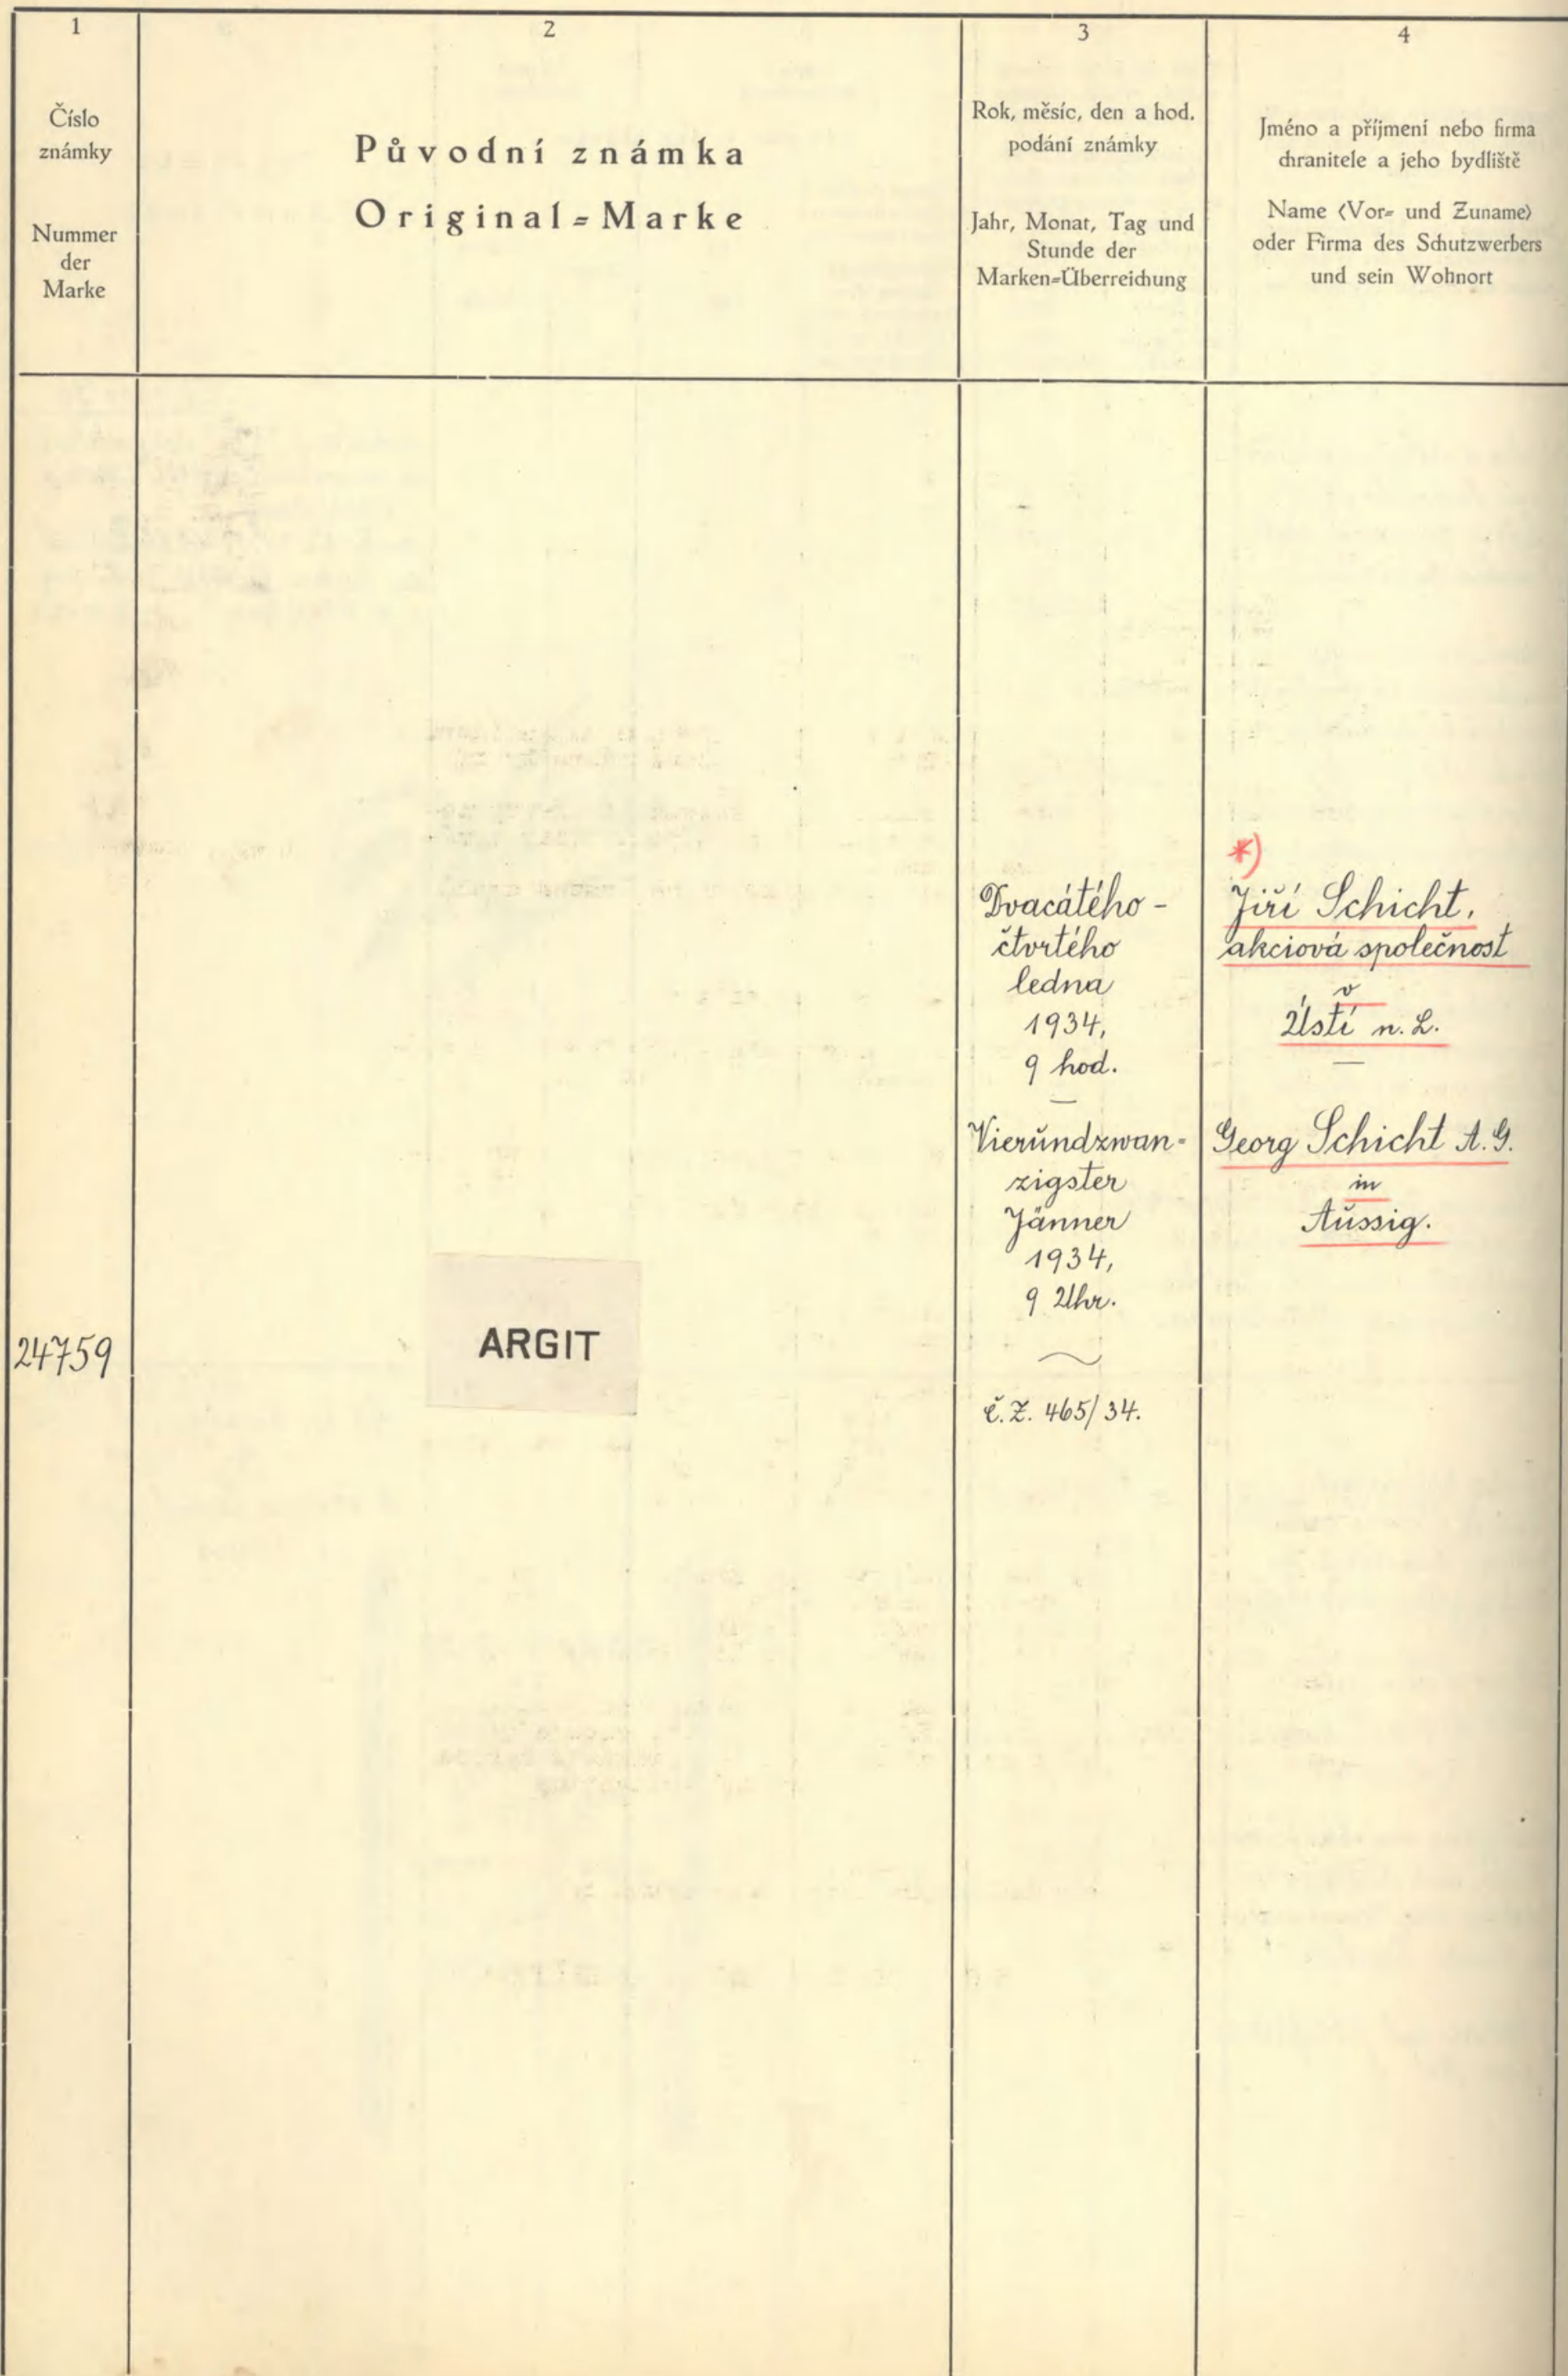 1
Číslo
známky
Nummer
der
Marke
2
Původní známka
Original=Marke
3
Rok, měsíc, den a hod.
podání známky
Jahr, Monat, Tag und
Stunde der
Marken=Überreichung
4
Jméno a příjmení nebo firma
chranitele a jeho bydliště
Name (Vor= und Zuname)
oder Firma des Schutzwerbers
und sein Wohnort
24759
ARGIT
Dvacátého-
čtvrtého
ledna
1934,
9 hod.
—
Vierundzwan-
zigster
Jänner
1934,
9 Uhr.
č.Z. 465/34.
*)
Jiří Schicht,
akciová společnost
v
Ústí n. L.
—
Georg Schicht A.G.
in
Aussig.